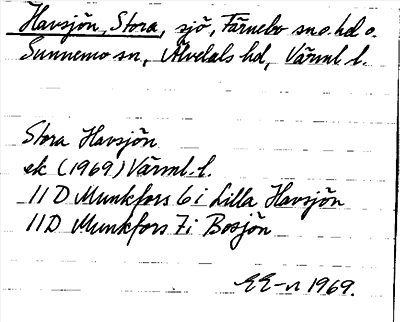 Havsjön, Stora, sjö, Färnebo sn o. hd o.
Sunnemo sn, Älvdals hd, Värml. l.
Stora Havsjön
ek (1969) Värml. l.
11 D Munkfors 6 i Lilla Havsjön
11 D Munkfors 7 i Bosjön
EE-n 1969.